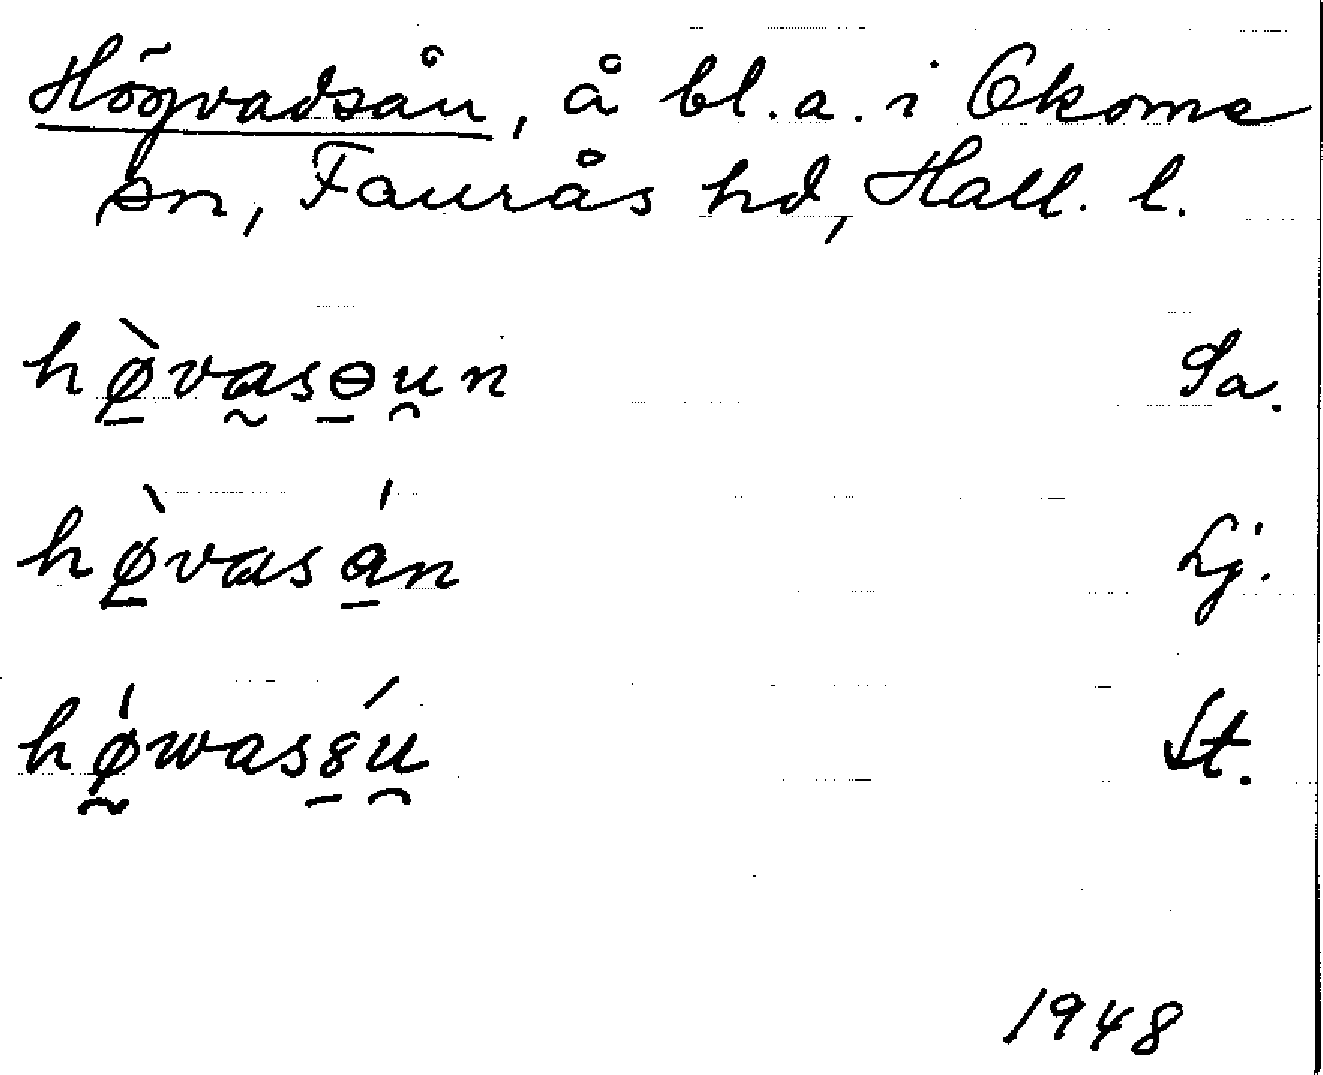 Högvadsån, å bl.a. i Okome
sn, Faurås hd, Hall. l.
hø̱̀va̰sɵ̱u̯n Sa.
hø̱̀vasá̱n Lj.
hǿ̰was8̱ú̯ St.
1948